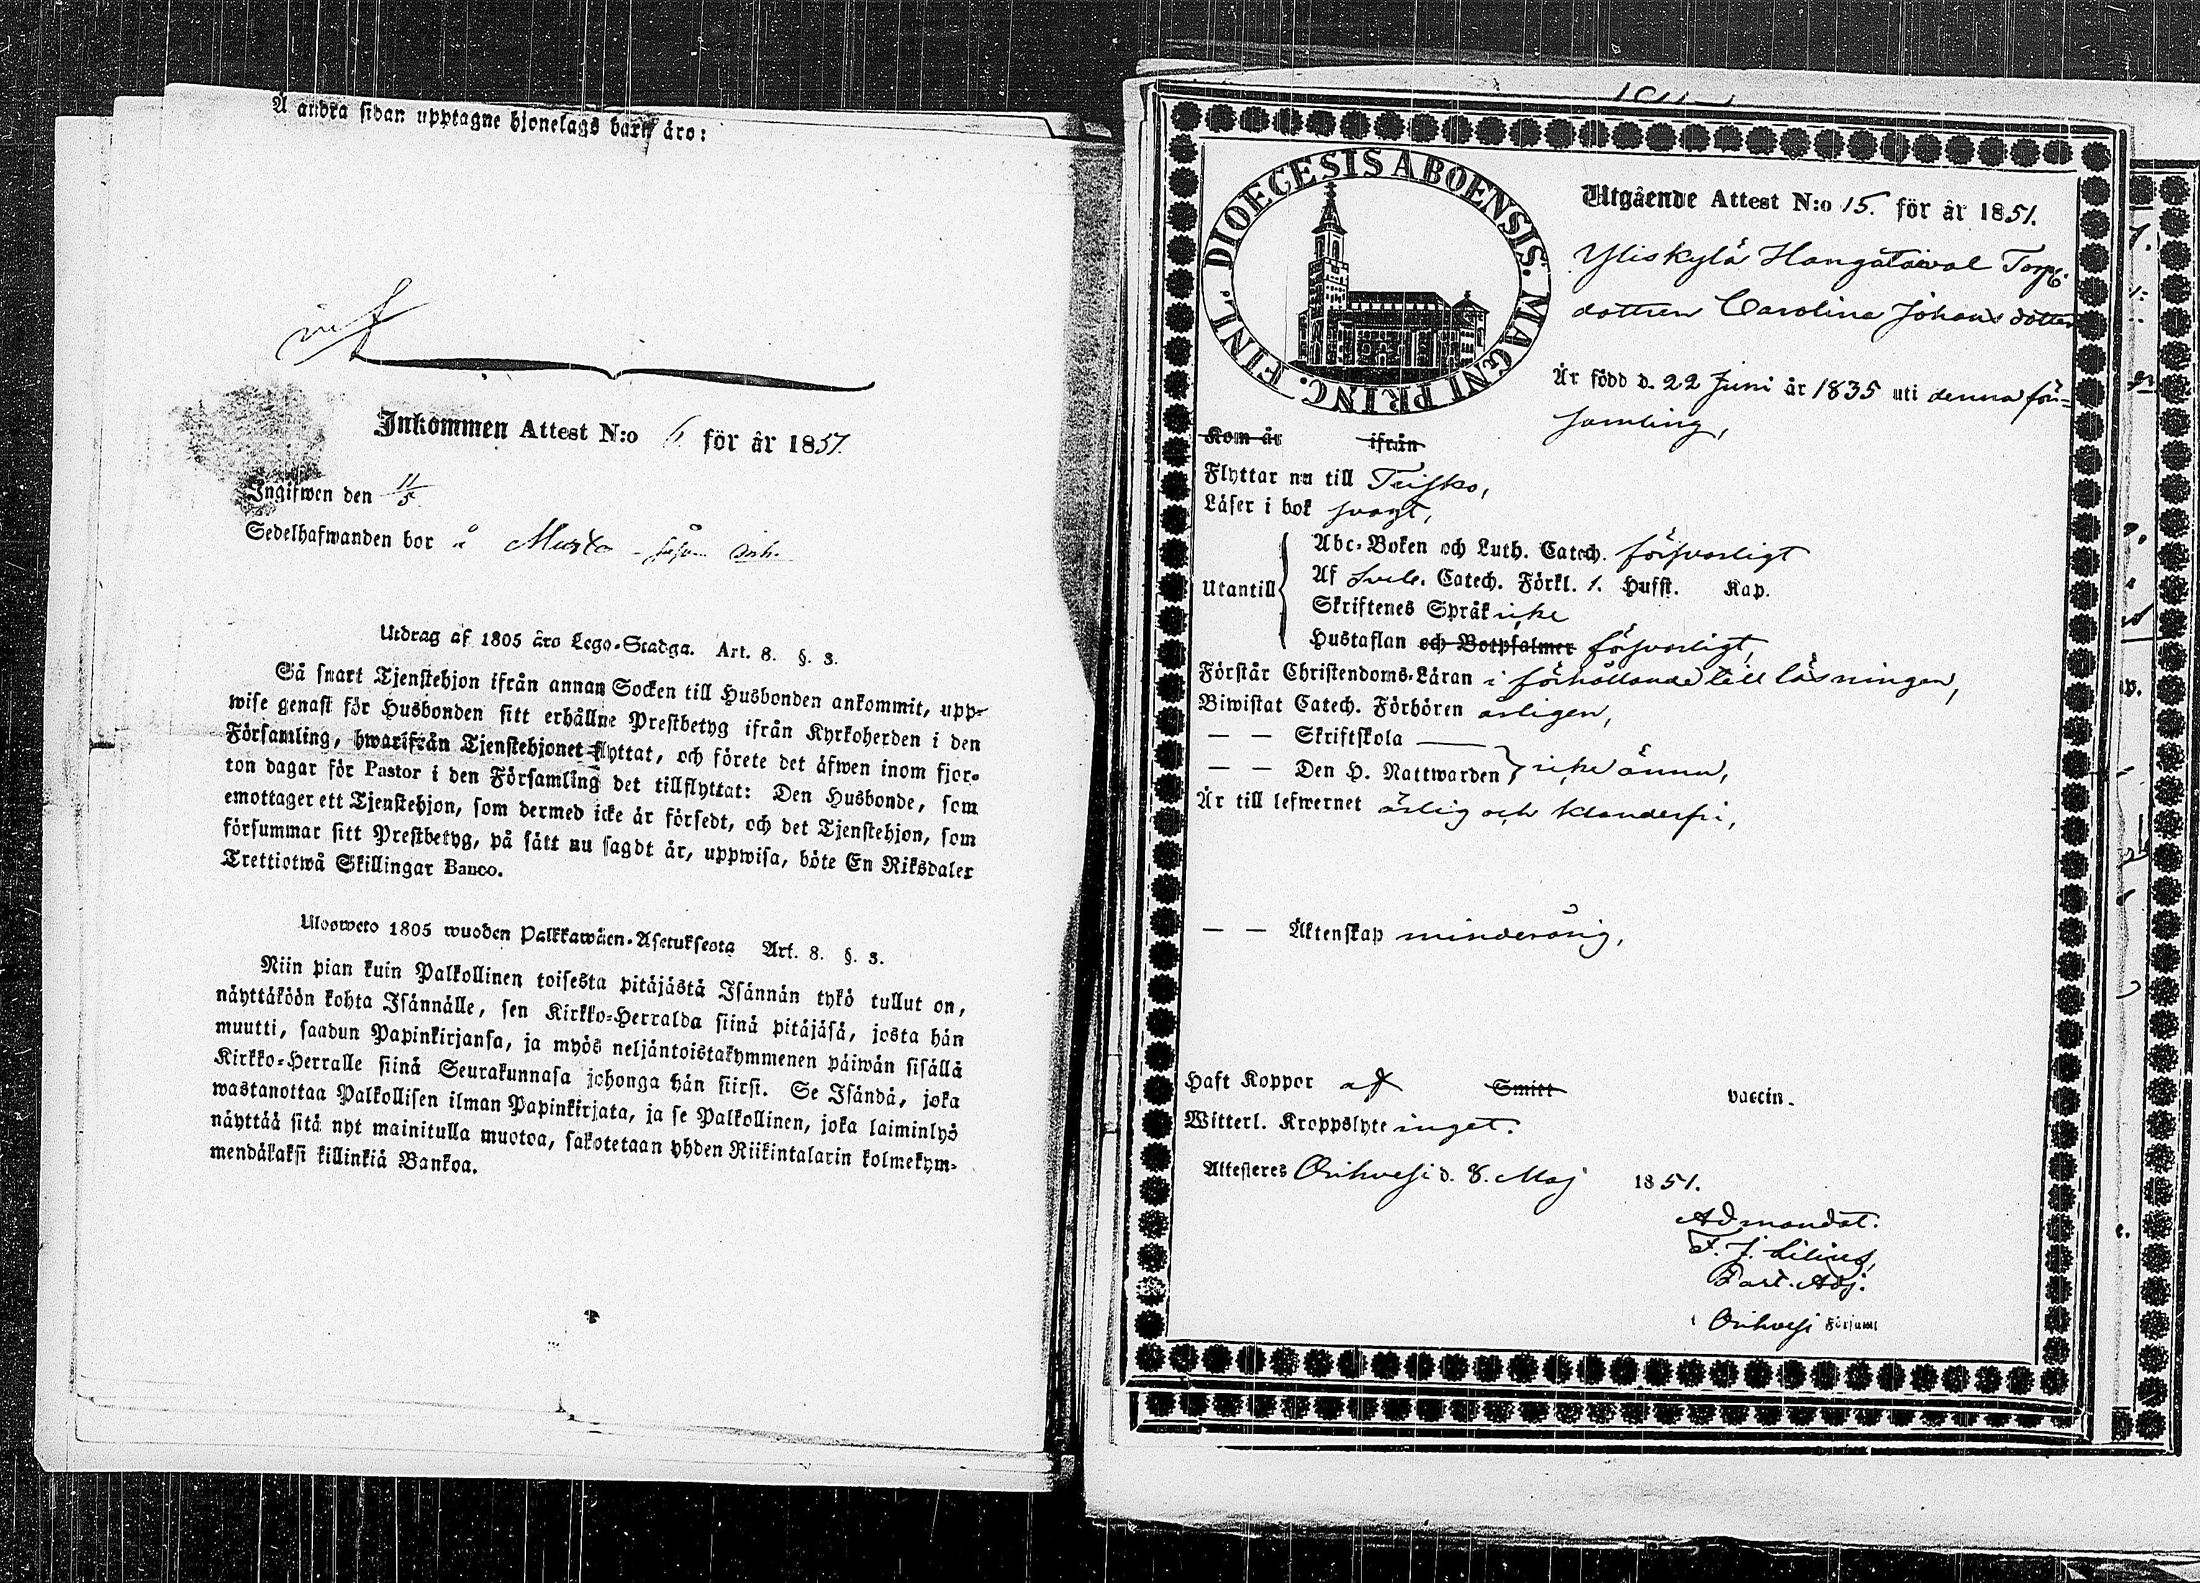 Å andra sidan upptagne hjonelags barn äro:
Inkommen Attest N:o 6 för år 1851.
Ingifwen den 11/5
Sedelhafwanden bor å
Utdrag af 1805 års Lego-Stadga. Art. 8. §. 3.
Så snart Tjenstehjon ifrån annan Socken till Husbonden ankommit, upp-
wise genast för Husbonden sitt erhållne Prestbetyg ifrån Kyrkoherden i den
Församling, hwarifrån Tjenstehjonet flyttat, och förete det äfwen inom fjor-
ton dagar för Pastor i den Församling det tillflyttat: Den Husbonde, som
emottager ett Tjenstehjon, som dermed icke är försedt, och det Tjenstehjon, som
försummar sitt Prestbetyg, på sätt nu sagdt är, uppwisa, böte En Riksdaler
Trettiotwå Skillingar Banco.
Ulosweto 1805 wuoden Palkkawäen-Asetuksesta Art. 8. §. 3.
Niin pian kuin Palkollinen toisesta pitäjästä Isännän tykö tullut on,
näyttäköön kohta Isännälle, sen Kirkko-Herralda siinä pitäjäsä, josta hän
muutti, saadun Papinkirjansa, ja myös neljäntoistakymmenen päiwän sisällä
Kirkko-Herralle siinä Seurakunnasa johonga hän siirsi. Se Isändä, joka
wastanottaa Palkollisen ilman Papinkirjata, ja se Palkollinen, joka laiminlyö
näyttää sitä nyt mainitulla muotoa, sakotetaan yhden Riikintalarin kolmekym-
mendäkaksi killinkiä Bankoa.
DIOECESIS ABOENSIS. MAGNI PRINC. FINL.
Utgående Attest N:o 15. för år 1851.
Yliskylä Hangataival Torp.
dottren Carolina Johansdotter
Är född d. 22 Juni år 1835 uti denna för-
samling,
Kom år ifrån
Flyttar nu till Teisko,
Läser i bok svagt,
Utantill
Abc-Boken och Luth. Catech. försvarligt
Af Sveb. Catech. Förkl. 1. Hufst. Kap.
Skriftenes Språk icke
Hustaflan och Botpsalmer försvarligt,
Förstår Christendoms-Läran i förhållande till läsningen,
Biwistat Catech. Förhören årligen,
— — Skriftskola
— — Den H. Nattwarden icke ännu,
Är till lefwernet ärlig och klanderfri,
— — Äktenskap minderårig,
Haft Koppor af Smitt vaccin.
Witterl. Kroppslyte inget.
Attesteres Orihvesi d. 8. Maj 1851.
Ad mandat.
F. J. Lilius,
Past. Adj.
i Orihvesi Församl